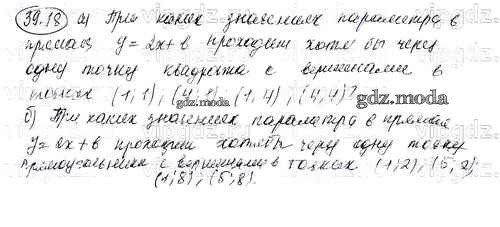 39.18 а) При каких значениях параметра в
прямая y=2x+в проходит хотя бы через
одну точку квадрата с вершинами в
точках (1,1); (4,1); (1,4); (4,4)?
gdz.moda
gdz.moda
б) При каких значениях параметра в прямая
y=2x+в проходит хотя бы через одну точку
прямоугольника с вершинами в точках (1,2); (5,2);
(1,8); (5,8).